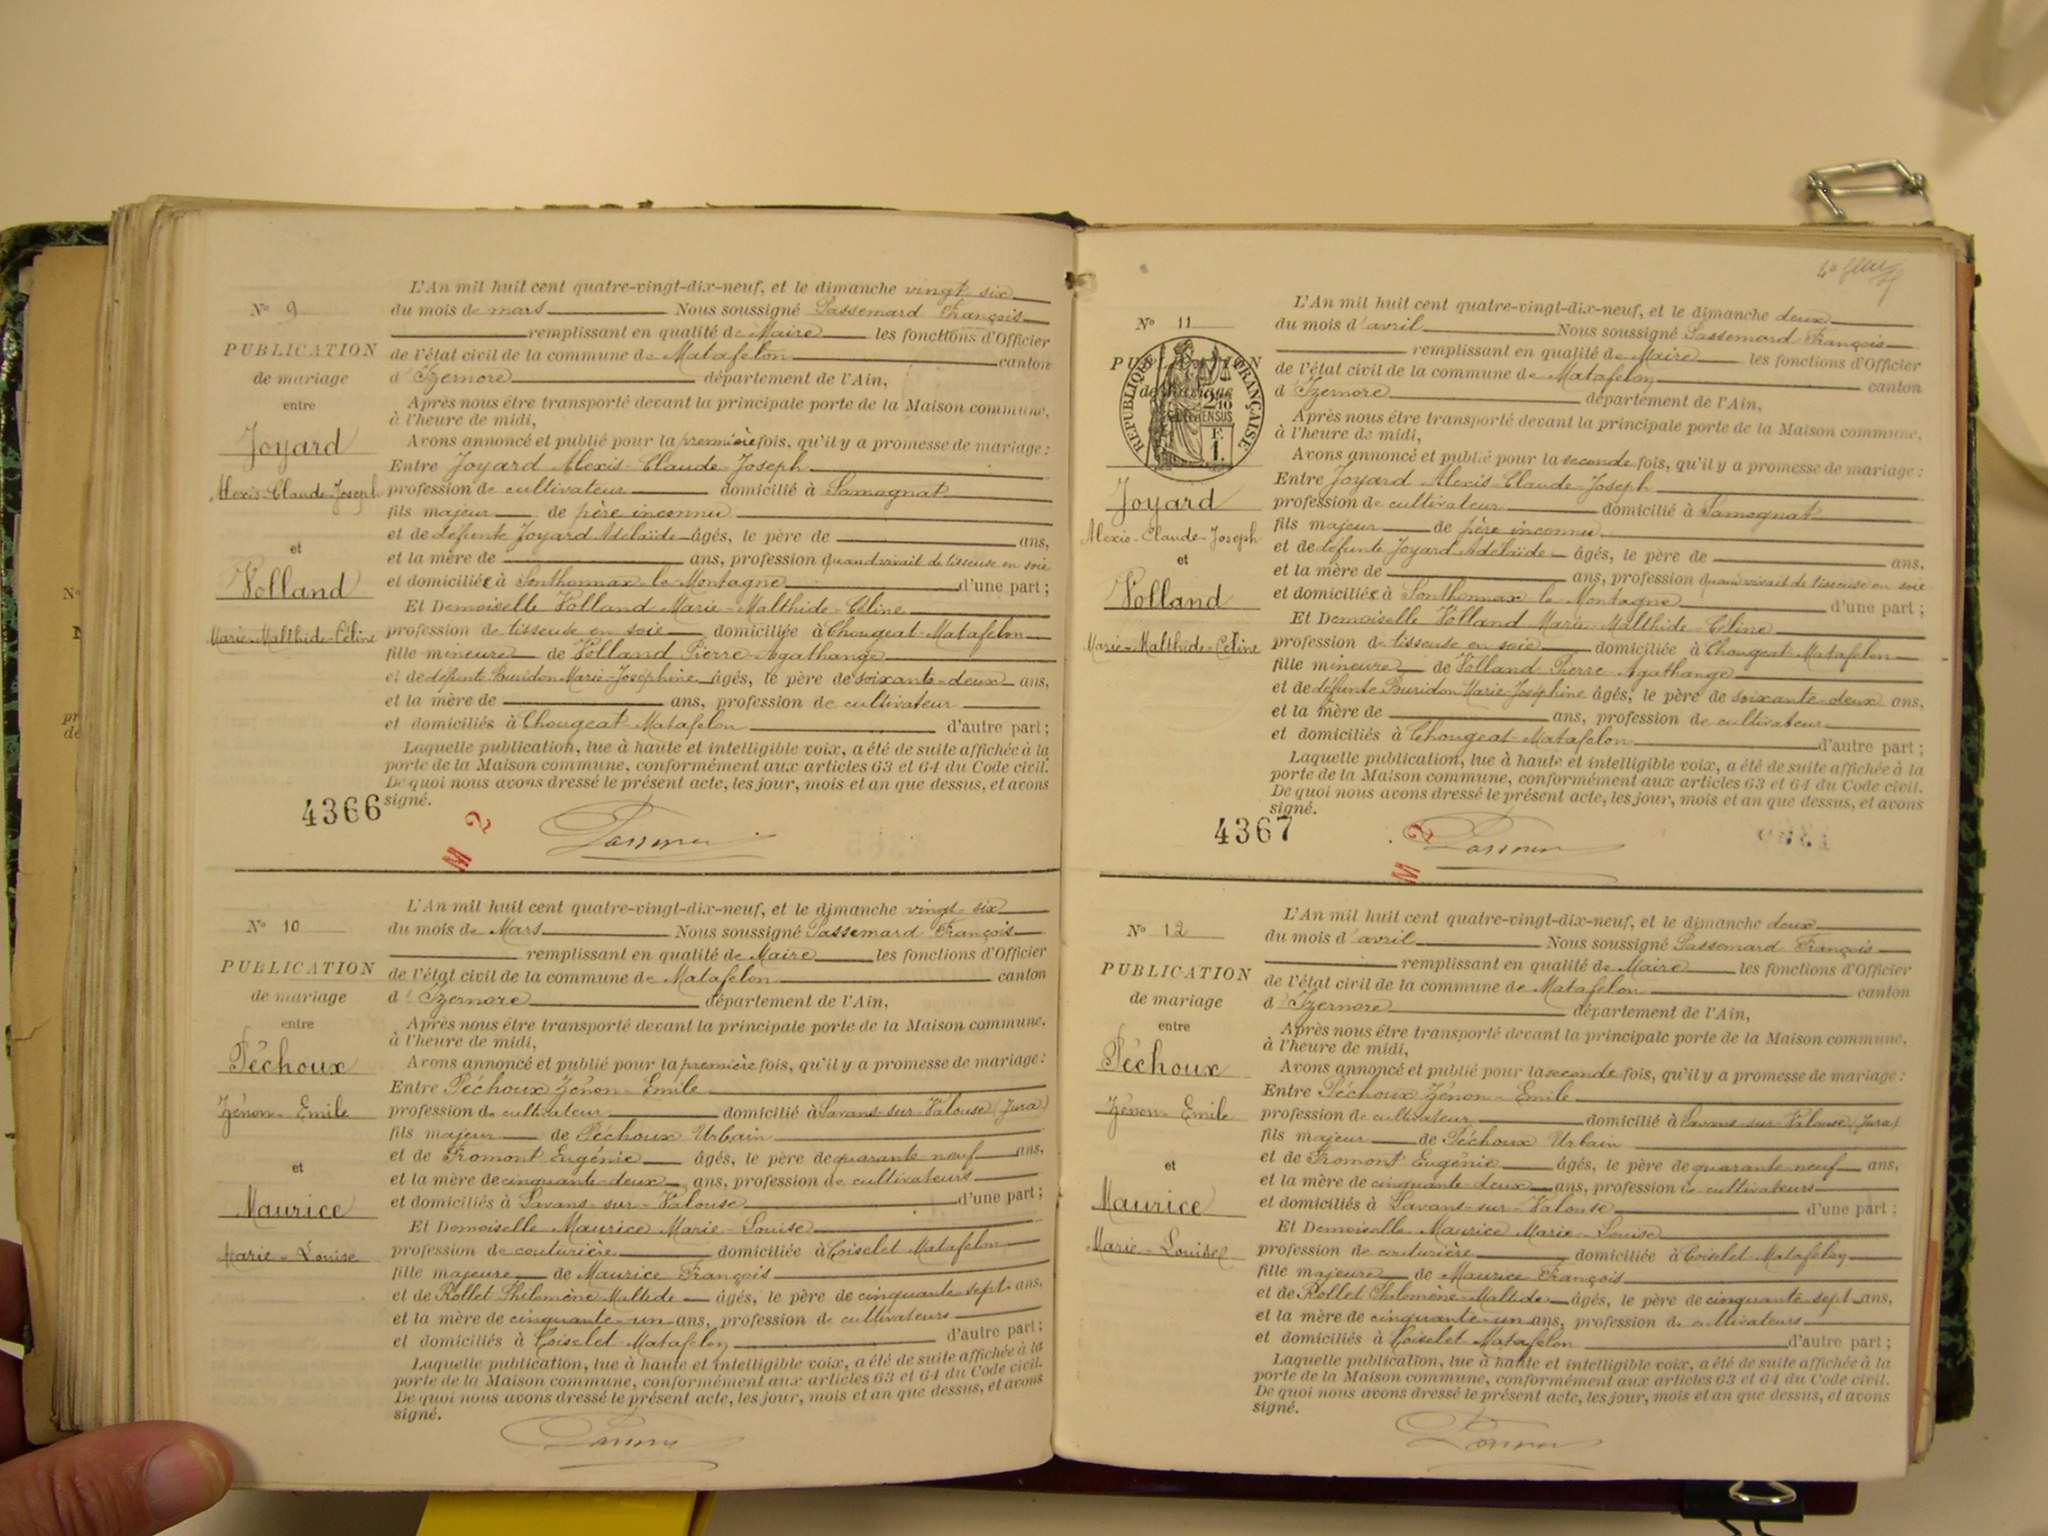 N° 9
PUBLICATION
de mariage
entre
Joyard
Alexis-Claude-Joseph
et
Volland
Marie-Malthide-Céline
L'An mil huit cent quatre-vingt-dix-neuf, et le dimanche vingt-six
du mois de mars Nous soussigné Passemard François
remplissant en qualité de Maire les fonctions d'Officier
de l'état civil de la commune de Matafelon canton
d'Izernore département de l'Ain,
Après nous être transporté devant la principale porte de la Maison commune,
à l'heure de midi,
Avons annoncé et publié pour la première fois, qu'il y a promesse de mariage :
Entre Joyard Alexis-Claude-Joseph
profession de cultivateur domicilié à Samognat
fils majeur de père inconnu
et de défunte Joyard Adélaïde âgés, le père de ans,
et la mère de ans, profession quand vivait de tisseuse en soie
et domiciliée à Sonthonnax-la-Montagne d'une part ;
Et Demoiselle Volland Marie-Malthide-Céline
profession de tisseuse en soie domiciliée à Chougeat-Matafelon
fille mineure de Volland Pierre-Agathange
et de défunte Buridon Marie-Joséphine âgés, le père de soixante-deux ans,
et la mère de ans, profession de cultivateur
et domiciliés à Chougeat-Matafelon d'autre part ;
Laquelle publication, lue à haute et intelligible voix, a été de suite affichée à la
porte de la Maison commune, conformément aux articles 63 et 64 du Code civil.
De quoi nous avons dressé le présent acte, les jour, mois et an que dessus, et avons
signé.
4366
M 2
N° 10
PUBLICATION
de mariage
entre
Péchoux
Zénon-Emile
et
Maurice
Marie-Louise
L'An mil huit cent quatre-vingt-dix-neuf, et le dimanche vingt-six
du mois de Mars Nous soussigné Passemard François
remplissant en qualité de Maire les fonctions d'Officier
de l'état civil de la commune de Matafelon canton
d'Izernore département de l'Ain,
Après nous être transporté devant la principale porte de la Maison commune,
à l'heure de midi,
Avons annoncé et publié pour la première fois, qu'il y a promesse de mariage :
Entre Péchoux Zénon-Emile
profession de cultivateur domicilié à Lavans-sur-Valouse (Jura)
fils majeur de Péchoux Urbain
et de Fromont Eugénie âgés, le père de quarante-neuf ans,
et la mère de cinquante-deux ans, profession de cultivateurs
et domiciliés à Lavans-sur-Valouse d'une part ;
Et Demoiselle Maurice Marie-Louise
profession de couturière domiciliée à Coiselet Matafelon
fille majeure de Maurice François
et de Rollet Philomène Maltide âgés, le père de cinquante-sept ans,
et la mère de cinquante-un ans, profession de cultivateurs
et domiciliés à Coiselet-Matafelon d'autre part ;
Laquelle publication, lue à haute et intelligible voix, a été de suite affichée à la
porte de la Maison commune, conformément aux articles 63 et 64 du Code civil.
De quoi nous avons dressé le présent acte, les jour, mois et an que dessus, et avons
signé.
N° 11
PUBLICATION
de mariage
RÉPUBLIQUE FRANÇAISE
2/10 EN SUS
F. 1.
Joyard
Alexis-Claude-Joseph
et
Volland
Marie-Malthide-Céline
L'An mil huit cent quatre-vingt-dix-neuf, et le dimanche deux
du mois d'avril Nous soussigné Passemard François
remplissant en qualité de Maire les fonctions d'Officier
de l'état civil de la commune de Matafelon canton
d'Izernore département de l'Ain,
Après nous être transporté devant la principale porte de la Maison commune,
à l'heure de midi,
Avons annoncé et publié pour la seconde fois, qu'il y a promesse de mariage :
Entre Joyard Alexis-Claude-Joseph
profession de cultivateur domicilié à Samognat
fils majeur de père inconnu
et de défunte Joyard Adélaïde âgés, le père de ans,
et la mère de ans, profession quand vivait de tisseuse en soie
et domiciliée à Sonthonnax-la-Montagne d'une part ;
Et Demoiselle Volland Marie-Malthide-Céline
profession de tisseuse en soie domiciliée à Chougeat-Matafelon
fille mineure de Volland Pierre-Agathange
et de défunte Buridon Marie-Joséphine âgés, le père de soixante-deux ans,
et la mère de ans, profession de cultivateur
et domiciliés à Chougeat-Matafelon d'autre part ;
Laquelle publication, lue à haute et intelligible voix, a été de suite affichée à la
porte de la Maison commune, conformément aux articles 63 et 64 du Code civil.
De quoi nous avons dressé le présent acte, les jour, mois et an que dessus, et avons
signé.
4367
M 2
N° 12
PUBLICATION
de mariage
entre
Péchoux
Zénon-Emile
et
Maurice
Marie-Louise
L'An mil huit cent quatre-vingt-dix-neuf, et le dimanche deux
du mois d'avril Nous soussigné Passemard François
remplissant en qualité de Maire les fonctions d'Officier
de l'état civil de la commune de Matafelon canton
d'Izernore département de l'Ain,
Après nous être transporté devant la principale porte de la Maison commune,
à l'heure de midi,
Avons annoncé et publié pour la seconde fois, qu'il y a promesse de mariage :
Entre Péchoux Zénon-Emile
profession de cultivateur domicilié à Lavans-sur-Valouse (Jura)
fils majeur de Péchoux Urbain
et de Fromont Eugénie âgés, le père de quarante-neuf ans,
et la mère de cinquante-deux ans, profession de cultivateurs
et domiciliés à Lavans-sur-Valouse d'une part ;
Et Demoiselle Maurice Marie-Louise
profession de couturière domiciliée à Coiselet Matafelon
fille majeure de Maurice François
et de Rollet Philomène Maltide âgés, le père de cinquante-sept ans,
et la mère de cinquante-un ans, profession de cultivateurs
et domiciliés à Coiselet Matafelon d'autre part ;
Laquelle publication, lue à haute et intelligible voix, a été de suite affichée à la
porte de la Maison commune, conformément aux articles 63 et 64 du Code civil.
De quoi nous avons dressé le présent acte, les jour, mois et an que dessus, et avons
signé.